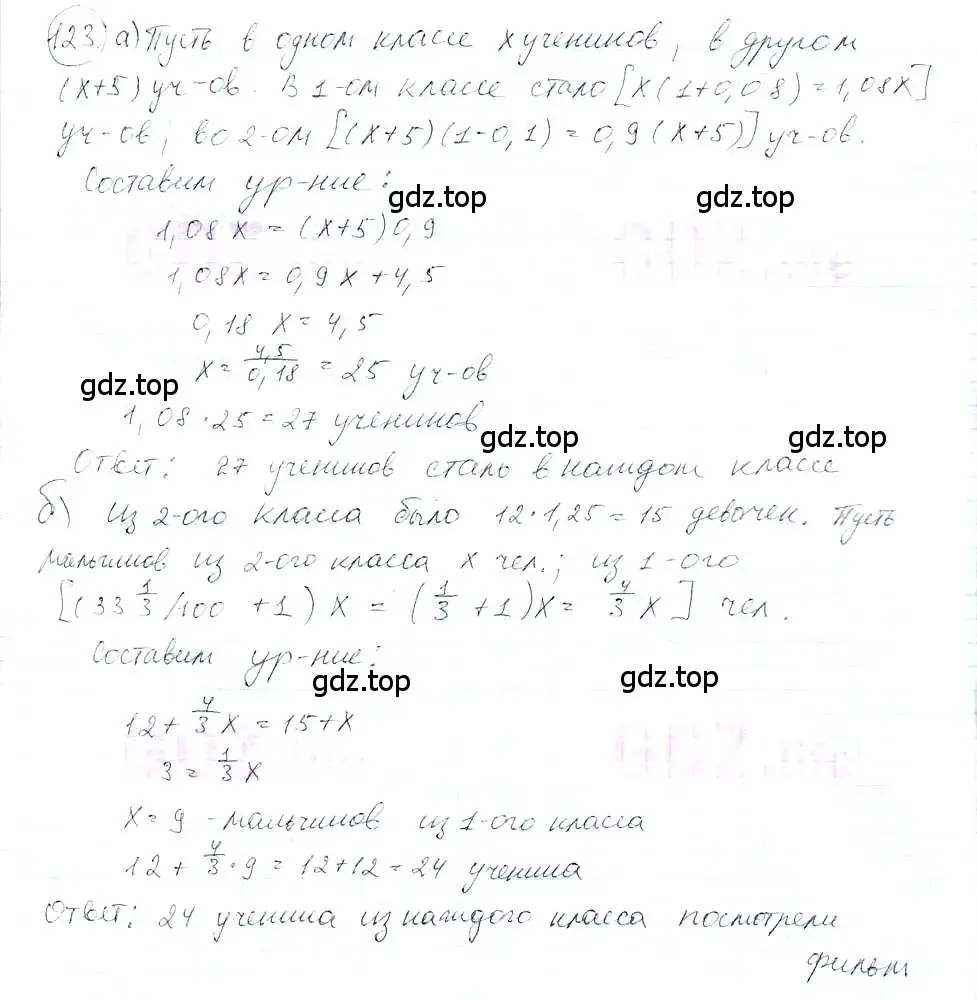 123. а) Пусть в одном классе x учеников, в другом
(x+5) уч-ов. В 1-ом классе стало [x(1+0,08)=1,08x]
уч-ов; во 2-ом [(x+5)(1-0,1)=0,9(x+5)] уч-ов.
Составим ур-ние:
gdz.top gdz.top
1,08x = (x+5)0,9
1,08x = 0,9x + 4,5
0,18 x = 4,5
x = 4,5/0,18 = 25 уч-ов
gdz.top
1,08 · 25 = 27 учеников
gdz.top gdz.top
Ответ: 27 учеников стало в каждом классе
б) Из 2-ого класса было 12·1,25 = 15 девочек. Пусть
мальчиков из 2-ого класса x чел.; из 1-ого
[(33 1/3 /100 + 1) x = (1/3 + 1)x = 4/3 x] чел.
Составим ур-ние:
gdz.top gdz.top
12 + 4/3 x = 15 + x
3 = 1/3 x
x = 9 - мальчиков из 1-ого класса
12 + 4/3 · 9 = 12 + 12 = 24 ученика
Ответ: 24 ученика из каждого класса посмотрели
фильм